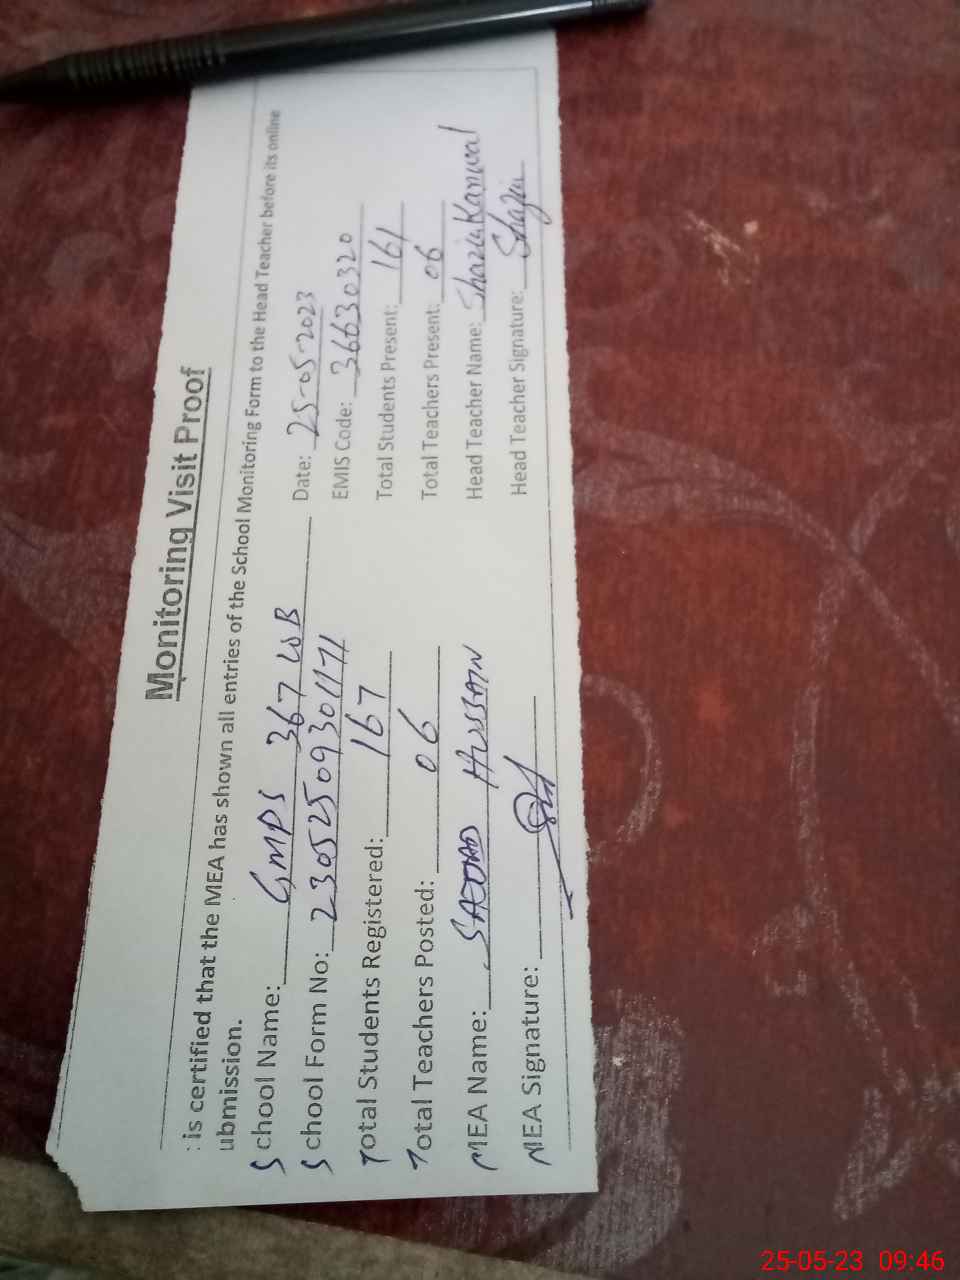 Monitoring Visit Proof
: is certified that the MEA has shown all entries of the School Monitoring Form to the Head Teacher before its online
ubmission.
School Name: GMPS 367 WB Date: 25-05-2023
School Form No: 23052509301171 EMIS Code: 36630320
Total Students Registered: 167 Total Students Present: 161
Total Teachers Posted: 06 Total Teachers Present: 06
MEA Name: HUSSAIN Head Teacher Name: Shazia Kanwal
MEA Signature: Head Teacher Signature: Shazia
25-05-23 09:46